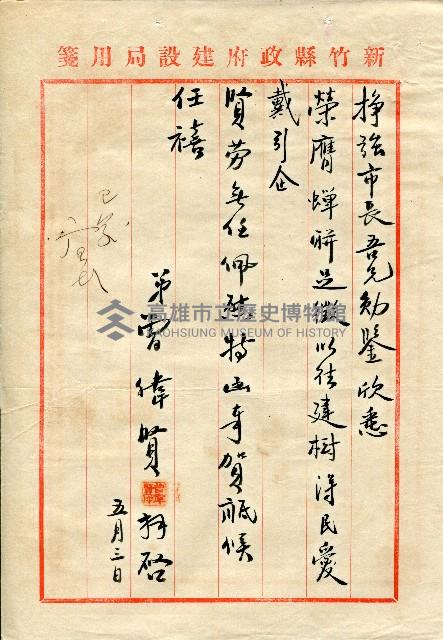 新竹縣政府建設局用箋
掙強市長吾兄勛鑒欣悉
榮膺蟬聯足徵以往建樹深得民愛
戴引企
賢勞無任佩馳特函奉賀祗候
任禧
弟雷偉賢拜啓
五月三日
高雄市立歷史博物館
KAOHSIUNG MUSEUM OF HISTORY